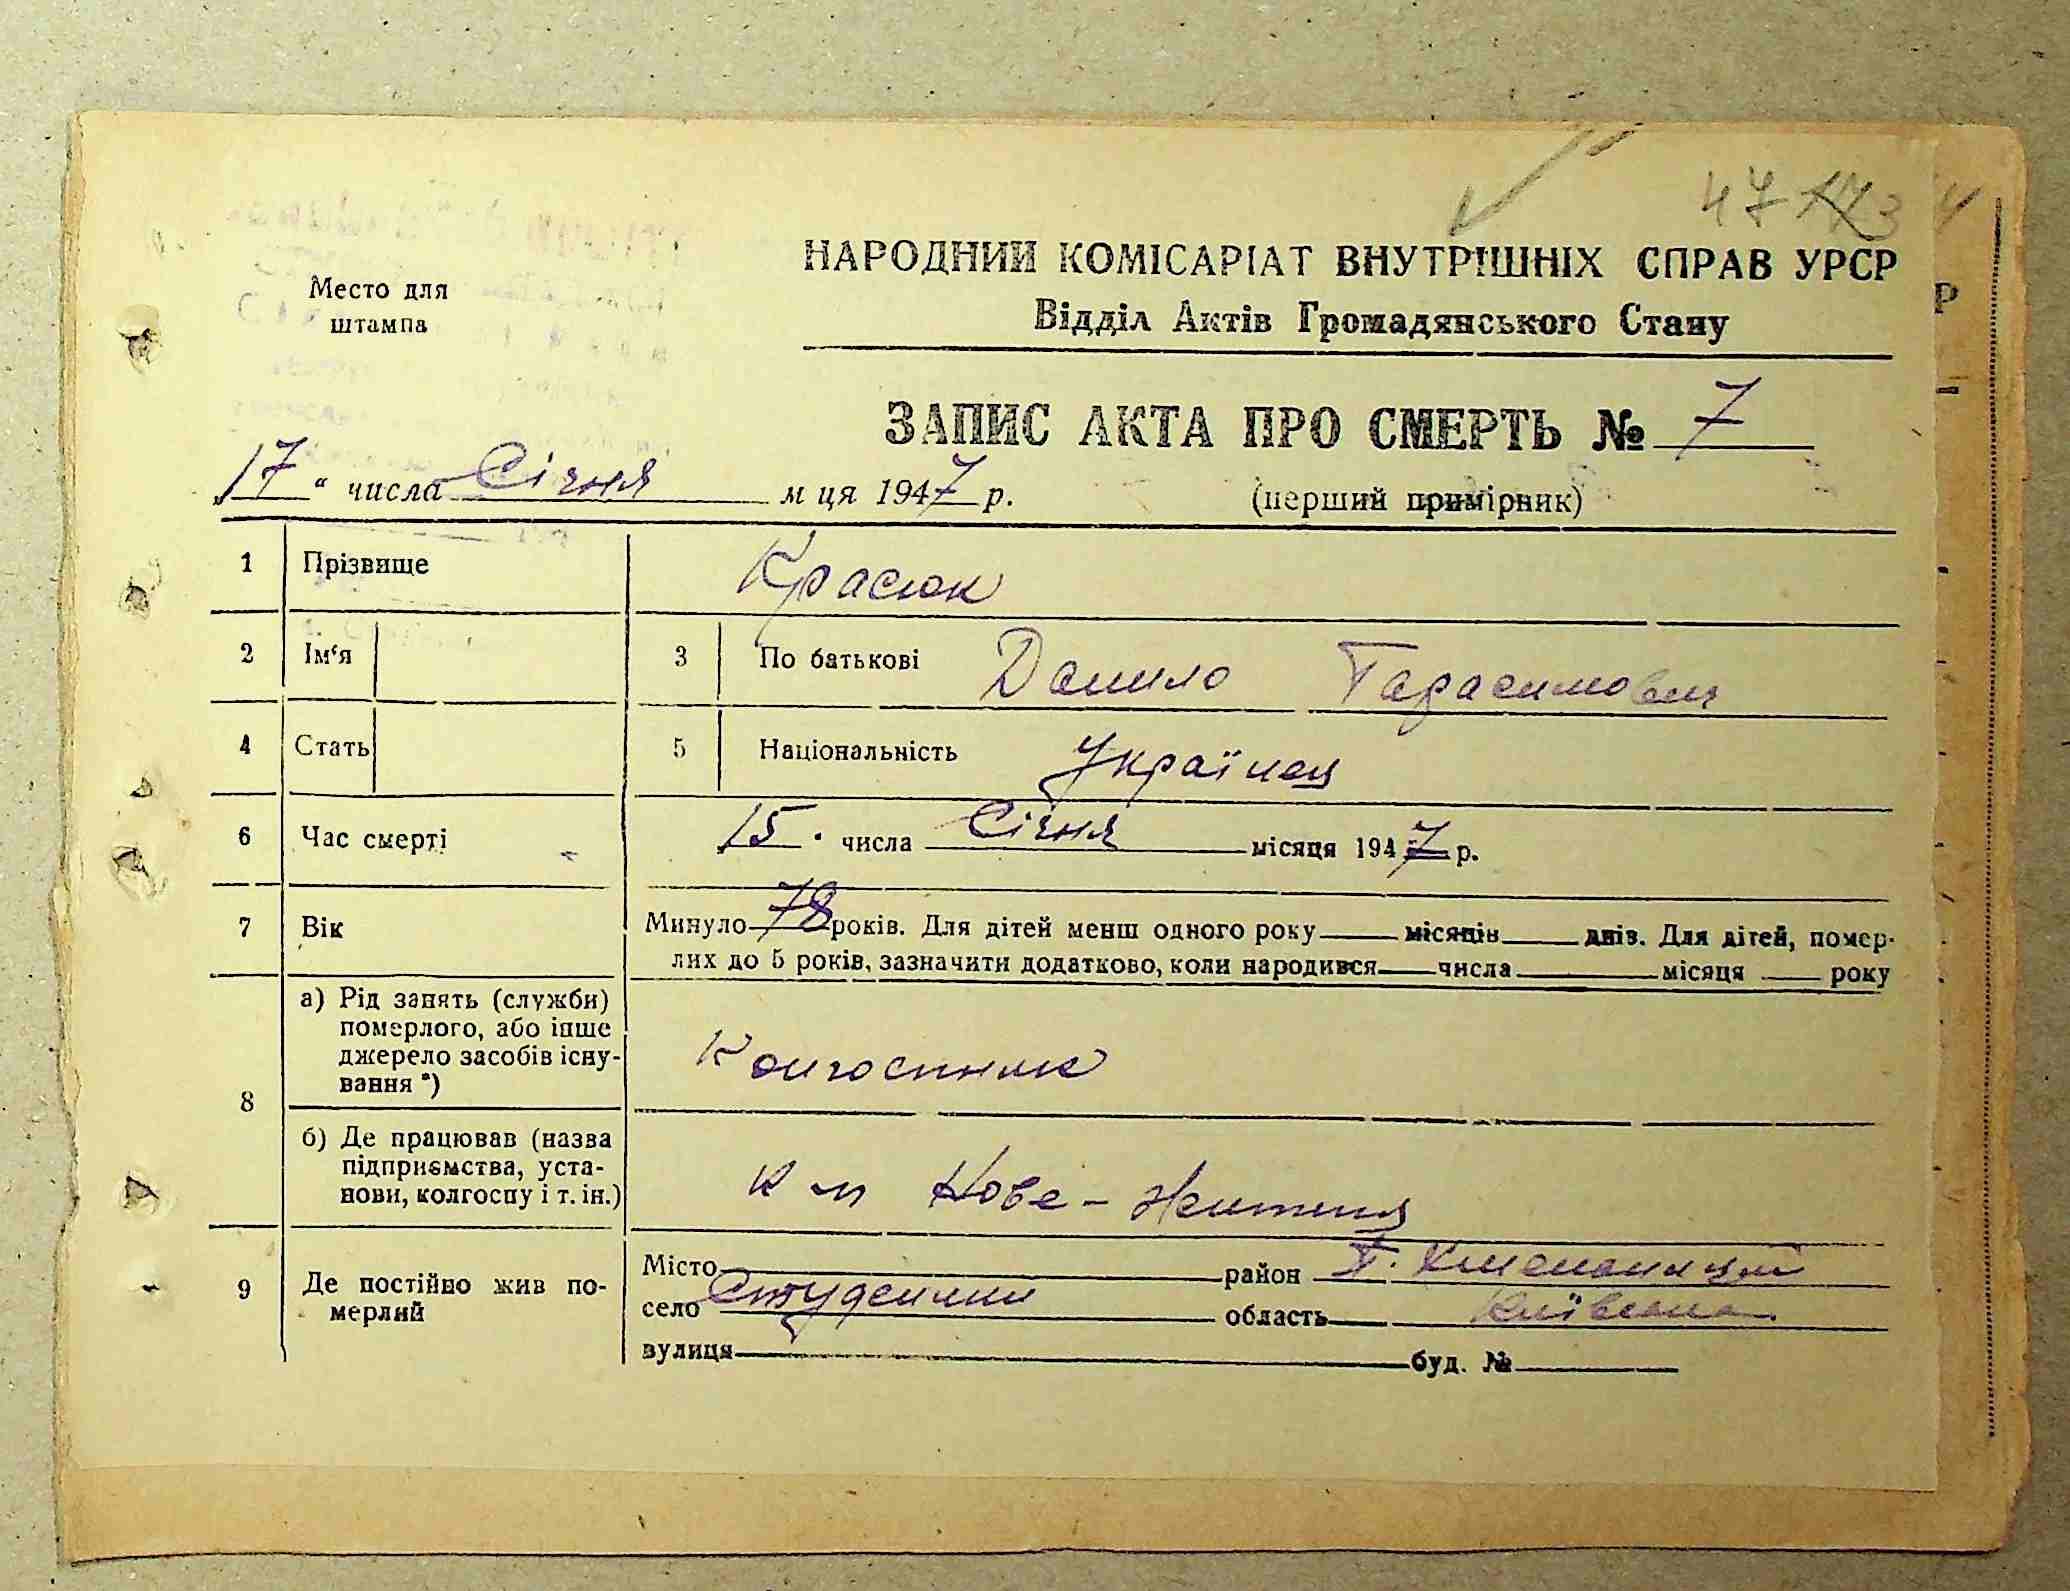 47 173
Место для
штампа
НАРОДНИЙ КОМІСАРІАТ ВНУТРІШНІХ СПРАВ УРСР
Відділ Актів Громадянського Стану
ЗАПИС АКТА ПРО СМЕРТЬ № 7
„17" числа Січня м ця 1947 р. (перший примірник)
1 Прізвище Красюк
2 Ім'я 3 По батькові Данило Тарасимович
4 Стать 5 Національність Українец
6 Час смерті 15. числа Січня місяця 1947 р.
7 Вік Минуло 78 років. Для дітей менш одного року місяців днів. Для дітей, помер-
лих до 5 років, зазначити додатково, коли народився числа місяця року
8 а) Рід занять (служби)
померлого, або інше
джерело засобів існу-
вання *)
Колгоспник
б) Де працював (назва
підприємства, уста-
нови, колгоспу і т. ін.)
к-п Нове-Життя
9 Де постійно жив по-
мерлий
Місто район П. Хмельницкий
село Студеники область Київська
вулиця буд. №